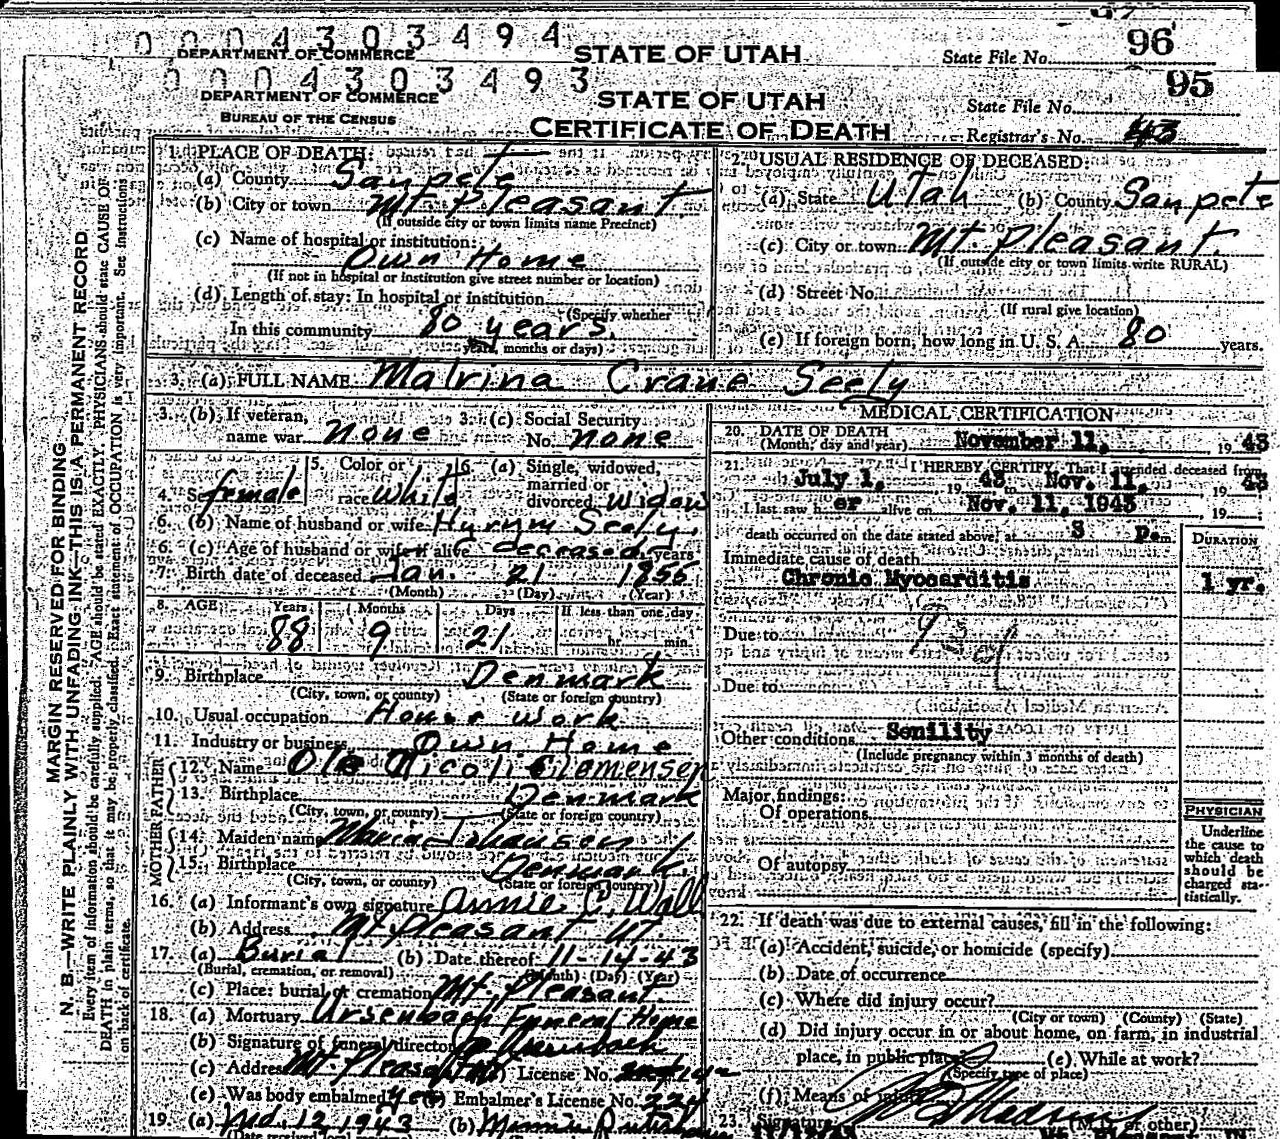 0 0 0 4 3 0 3 4 9 4
DEPARTMENT OF COMMERCE STATE OF UTAH State File No. 96
0 0 0 4 3 0 3 4 9 3
DEPARTMENT OF COMMERCE STATE OF UTAH State File No. 95
BUREAU OF THE CENSUS CERTIFICATE OF DEATH Registrar's No. 43
MARGIN RESERVED FOR BINDING
N. B.—WRITE PLAINLY WITH UNFADING INK—THIS IS A PERMANENT RECORD
Every item of information should be carefully supplied. AGE should be stated EXACTLY. PHYSICIANS should state CAUSE OF
DEATH in plain terms, so that it may be properly classified. Exact statement of OCCUPATION is very important. See instructions
on back of certificate.
1. PLACE OF DEATH:
(a) County Sanpete
(b) City or town Mt. Pleasant
(If outside city or town limits name Precinct)
(c) Name of hospital or institution:
Own Home
(If not in hospital or institution give street number or location)
(d) Length of stay: In hospital or institution
(Specify whether
In this community 80 years.
years, months or days)
2. USUAL RESIDENCE OF DECEASED:
(a) State Utah (b) County Sanpete
(c) City or town Mt. Pleasant.
(If outside city or town limits write RURAL)
(d) Street No.
(If rural give location)
(e) If foreign born, how long in U. S. A. 80 years.
3. (a) FULL NAME Malvina Crane Seely
3. (b) If veteran, name war none 3. (c) Social Security No. none
4. Sex female 5. Color or race white 6. (a) Single, widowed, married or divorced widow
6. (b) Name of husband or wife Hyrum Seely.
6. (c) Age of husband or wife if alive deceased years
7. Birth date of deceased Jan. 21 1855
(Month) (Day) (Year)
8. AGE Years Months Days If less than one day
88 9 21 hr. min.
9. Birthplace Denmark
(City, town, or county) (State or foreign country)
10. Usual occupation House work
11. Industry or business Own Home
FATHER
12. Name Ole Nicoli Clemensen
13. Birthplace Denmark
(City, town, or county) (State or foreign country)
MOTHER
14. Maiden name Maria Johansen
15. Birthplace Denmark
(City, town, or county) (State or foreign country)
16. (a) Informant's own signature Annie C. Wall
(b) Address Mt Pleasant Ut.
17. (a) Burial (b) Date thereof 11-14-43
(Burial, cremation, or removal) (Month) (Day) (Year)
(c) Place: burial or cremation Mt. Pleasant
18. (a) Mortuary Ursenbach Funeral Home
(b) Signature of funeral director
(c) Address Mt. Pleasant License No.
(e) Was body embalmed yes Embalmer's License No. 224
19. (a) Nov. 12, 1943 (b)
(Date received local
MEDICAL CERTIFICATION
20. DATE OF DEATH
(Month, day and year) November 11, 19 43
21. I HEREBY CERTIFY, That I attended deceased from
July 1, 19 43 to Nov. 11, 19 43
I last saw h er alive on Nov. 11, 1943 19
death occurred on the date stated above, at 3 p. m. DURATION
Immediate cause of death
Chronic Myocarditis 1 yr.
Due to
Due to
Other conditions Senility
(Include pregnancy within 3 months of death)
Major findings:
Of operations
Of autopsy
PHYSICIAN
Underline
the cause to
which death
should be
charged sta-
tistically.
22. If death was due to external causes, fill in the following:
(a) Accident, suicide, or homicide (specify)
(b) Date of occurrence
(c) Where did injury occur?
(City or town) (County) (State)
(d) Did injury occur in or about home, on farm, in industrial
place, in public place? (e) While at work?
(Specify type of place)
(f) Means of injury
23. Signature (M.D. or other)